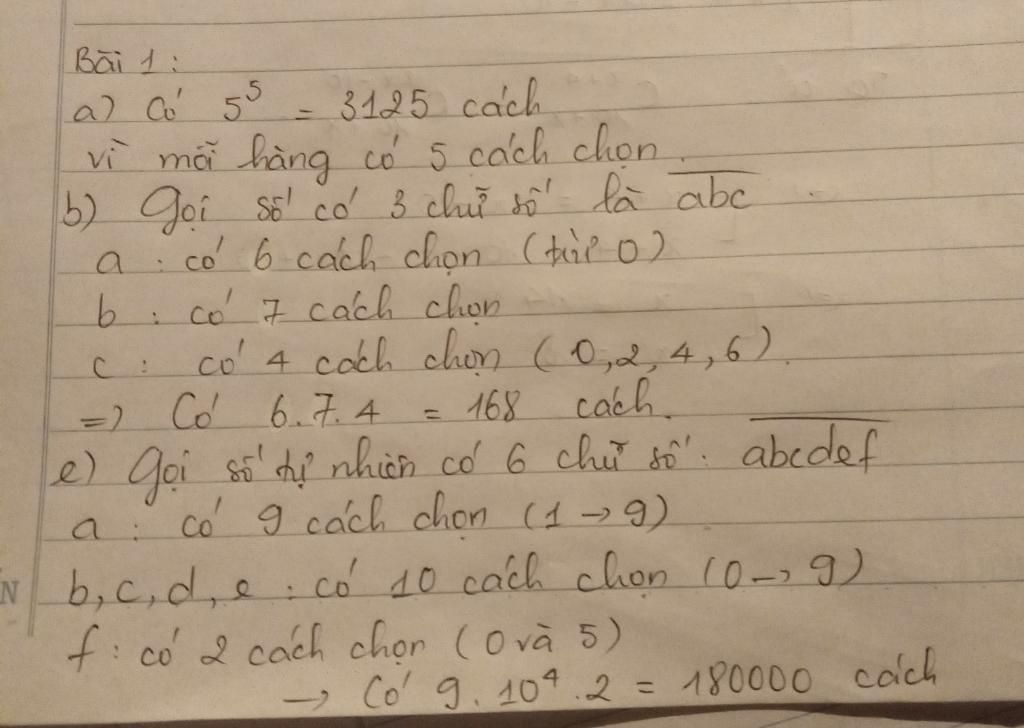 Bài 1:
a) Có 5⁵ = 3125 cách
vì mỗi hàng có 5 cách chọn.
b) Gọi số có 3 chữ số là abc
a : có 6 cách chọn (trừ 0)
b : có 7 cách chọn
c : có 4 cách chọn (0,2,4,6).
=) Có 6.7.4 = 168 cách.
e) Gọi số tự nhiên có 6 chữ số: abcdef
a : có 9 cách chọn (1 → 9)
b, c, d, e : có 10 cách chọn (0 → 9)
f : có 2 cách chọn (0 và 5)
→ Có 9. 10⁴. 2 = 180000 cách
N